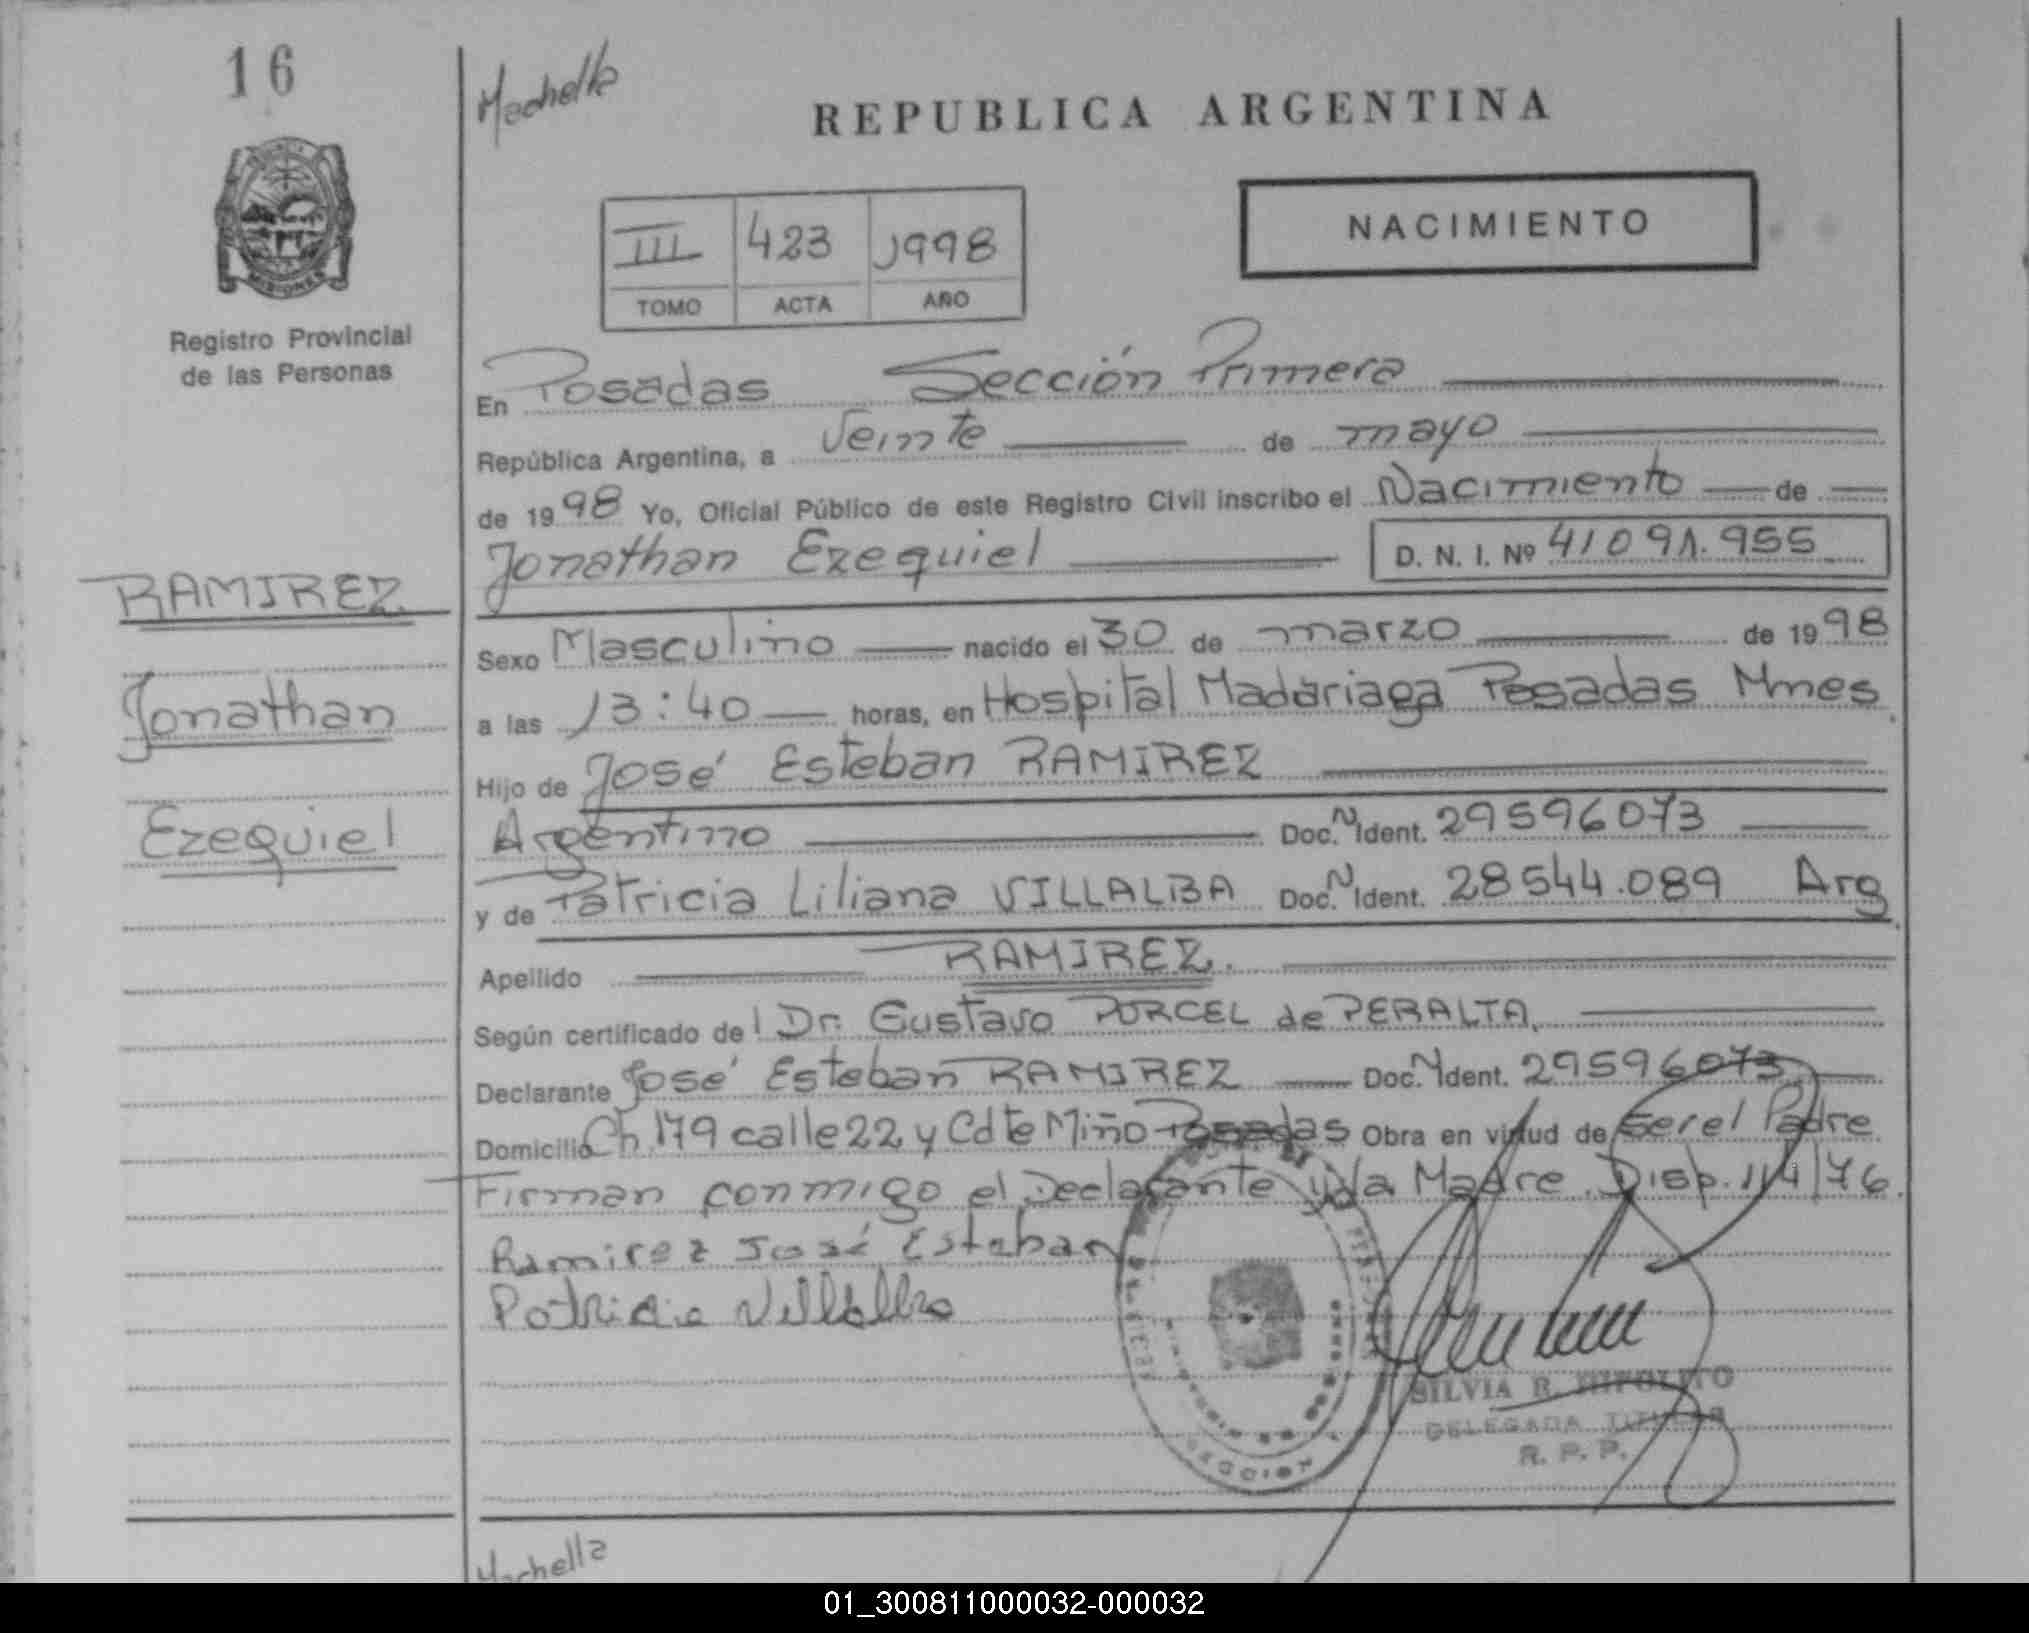 16
Mechella
REPUBLICA ARGENTINA
MISIONES
Registro Provincial
de las Personas
III 423 1998
TOMO ACTA AÑO
NACIMIENTO
En Posadas Sección Primera
República Argentina, a Veinte de mayo
de 1998 Yo, Oficial Público de este Registro Civil inscribo el Nacimiento de
Jonathan Ezequiel D. N. I. Nº 41091.955
RAMIREZ
Jonathan
Ezequiel
Sexo Masculino nacido el 30 de marzo de 1998
a las 13:40 horas, en Hospital Madariaga Posadas Mnes
Hijo de José Esteban RAMIREZ
Argentino Doc. N Ident. 29596073
y de Patricia Liliana VILLALBA Doc. N Ident. 28544.089 Arg
Apellido RAMIREZ.
Según certificado del Dr. Gustavo PORCEL de PERALTA,
Declarante José Esteban RAMIREZ Doc. N Ident. 29596073
Domicilio Ch. 179 calle 22 y Cdte Miño Posadas Obra en virtud de ser el Padre
Firman conmigo el Declarante y la Madre. Disp. 114/76.
Ramirez José Esteban
Patricia Villalba
SECCION
SILVIA R. HIPOLITO
DELEGADA TITULAR
R. P. P.
01_300811000032-000032